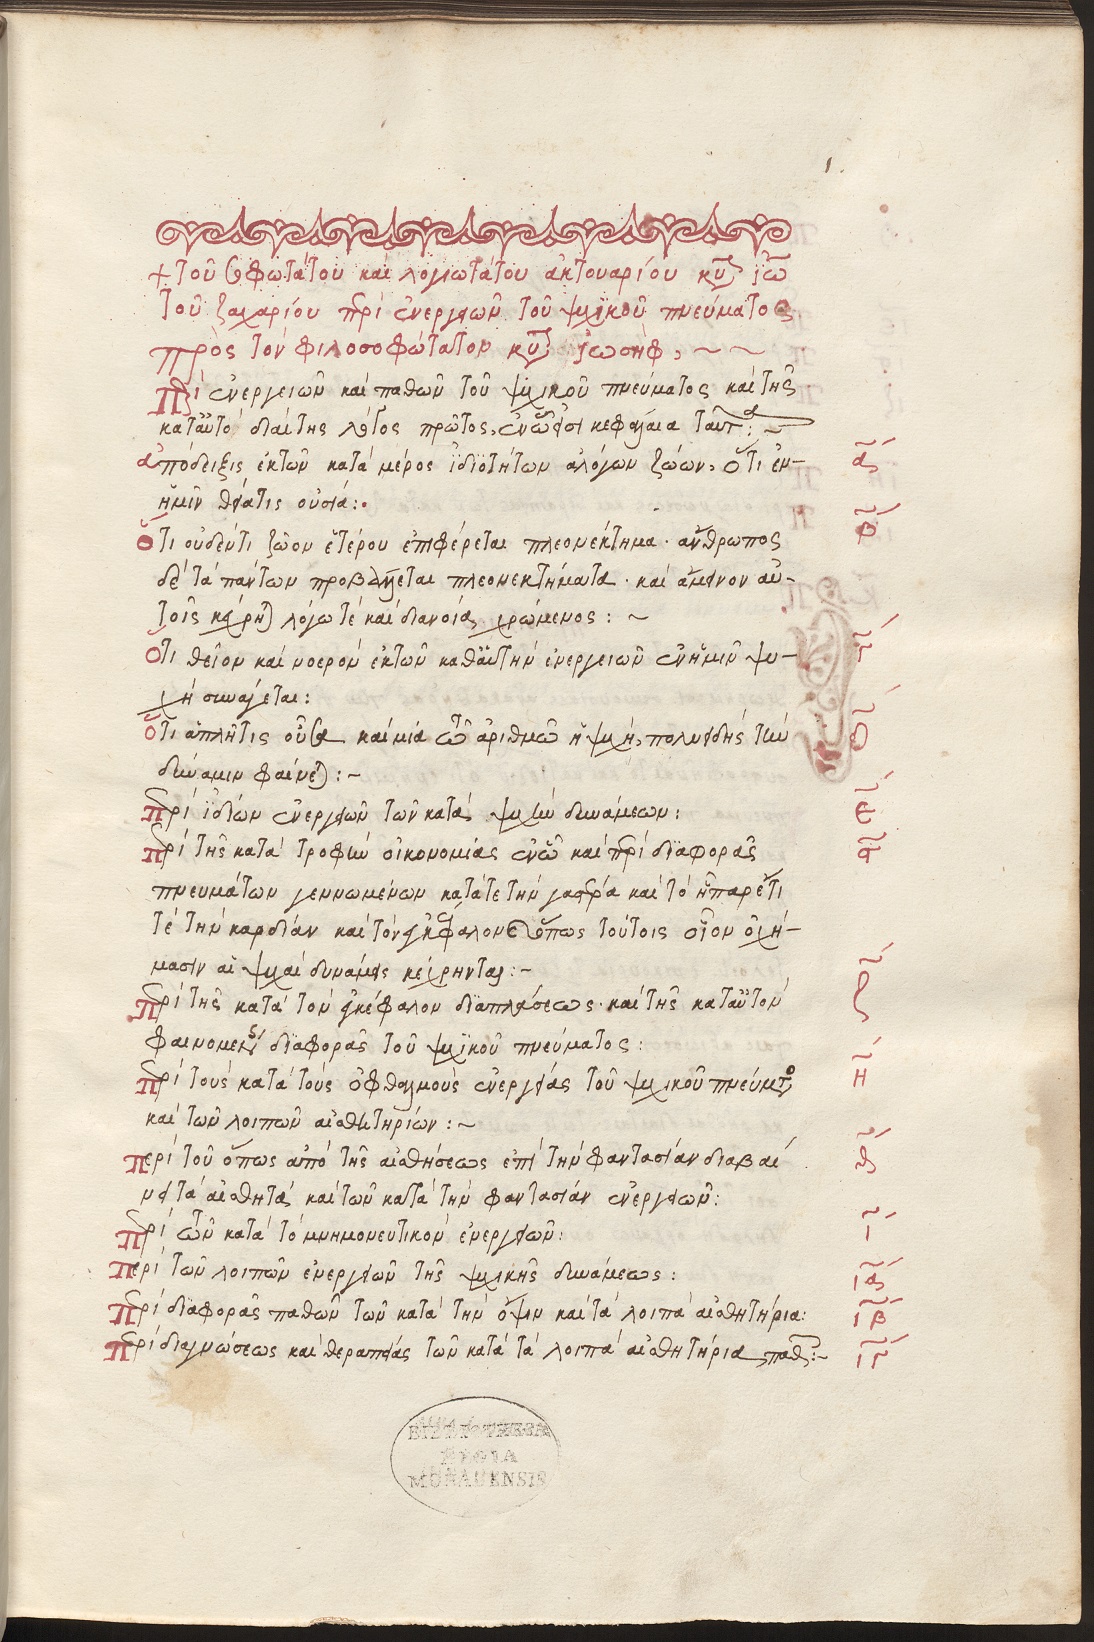 1.
+ τοῦ σοφωτάτου καὶ λογιωτάτου ἀκτουαρίου κυ ἰω
τοῦ ζαχαρίου περὶ ἐνεργειῶν τοῦ ψυχικοῦ πνεύματος
πρὸς τὸν φιλοσοφώτατον κυ ἰωσὴφ, ~ ~
Περὶ ἐνεργειῶν καὶ παθῶν τοῦ ψυχικοῦ πνεύματος καὶ τῆς
κατ' αὐτὸ διαίτης λόγος πρῶτος, ἐν ᾧ εἰσι κεφάλαια ταῦτα: ~
ἀπόδειξις ἐκ τῶν κατὰ μέρος ἰδιοτήτων ἀλόγων ζώων, ὅτι ἐν- α
ἡμῖν θεία τις οὐσία:.
Ὅτι οὐδέν τι ζῶον ἑτέρου ἐπιφέρεται πλεονέκτημα · ἄνθρωπος β
δὲ τὰ πάντων προβάλλεται πλεονεκτήματα · καὶ ἄμεινον αὐ-
τοῖς κέχρηται λόγω τὲ καὶ διανοία χρώμενος: ~
Ὅτι θεῖον καὶ νοερὸν ἐκ τῶν καθ' αὑτὴν ἐνεργειῶν ἐν ἡμῖν ψυ- γ
χὴ συνάγεται:
Ὅτι ἁπλῆ τις οὖσα καὶ μία τῶ ἀριθμῶ ἡ ψυχὴ, πολυειδὴς τὴν δ
δύναμιν φαίνεται: ~
Περὶ ἰδίων ἐνεργειῶν τῶν κατὰ ψυχὴν δυνάμεων: ε
Περὶ τῆς κατὰ τροφὴν οἰκονομίας ἐν ᾧ καὶ περὶ διαφορᾶς ϛ
πνευμάτων γεννωμένων κατά τε τὴν γαστέρα καὶ τὸ ἧπαρ ἔτι
τὲ τὴν καρδίαν καὶ τὸν ἐγκέφαλον καὶ ὅπως τούτοις οἷον ὀχή-
μασιν αἱ ψυχαὶ δυνάμεις κέχρηνται: ~
Περὶ τῆς κατὰ τὸν ἐγκέφαλον διαπλάσεως · καὶ τῆς κατ' αὐτὸν ζ
φαινομένης διαφορᾶς τοῦ ψυχικοῦ πνεύματος:
Περὶ τοὺς κατὰ τοὺς ὀφθαλμοὺς ἐνεργείας τοῦ ψυχικοῦ πνεύματος η
καὶ τῶν λοιπῶν αἰσθητηρίων: ~
Περὶ τοῦ ὅπως ἀπὸ τῆς αἰσθήσεως ἐπὶ τὴν φαντασίαν διαβαί θ
νει τὰ αἰσθητὰ καὶ τῶν κατὰ τὴν φαντασίαν ἐνεργειῶν:
Περὶ τῶν κατὰ τὸ μνημονευτικὸν ἐνεργειῶν: ι
Περὶ τῶν λοιπῶν ἐνεργειῶν τῆς ψυχικῆς δυνάμεως: ια
Περὶ διαφορᾶς παθῶν τῶν κατὰ τὴν ὄψιν καὶ τὰ λοιπὰ αἰσθητήρια: ιβ
Περὶ διαγνώσεως καὶ θεραπείας τῶν κατὰ τὰ λοιπὰ αἰσθητήρια παθῶν: ~ ιγ
BIBLIOTHECA
REGIA
MONACENSIS